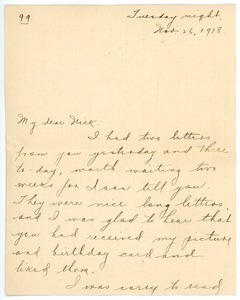 99
Tuesday night,
Nov. 26, 1918.
My dear Mick,
I had two letters
from you yesterday and three
to-day, worth waiting two
weeks for I can tell you.
They were nice long letters,
and I was glad to hear that
you had received my picture
and birthday card and
liked them.
I was sorry to read